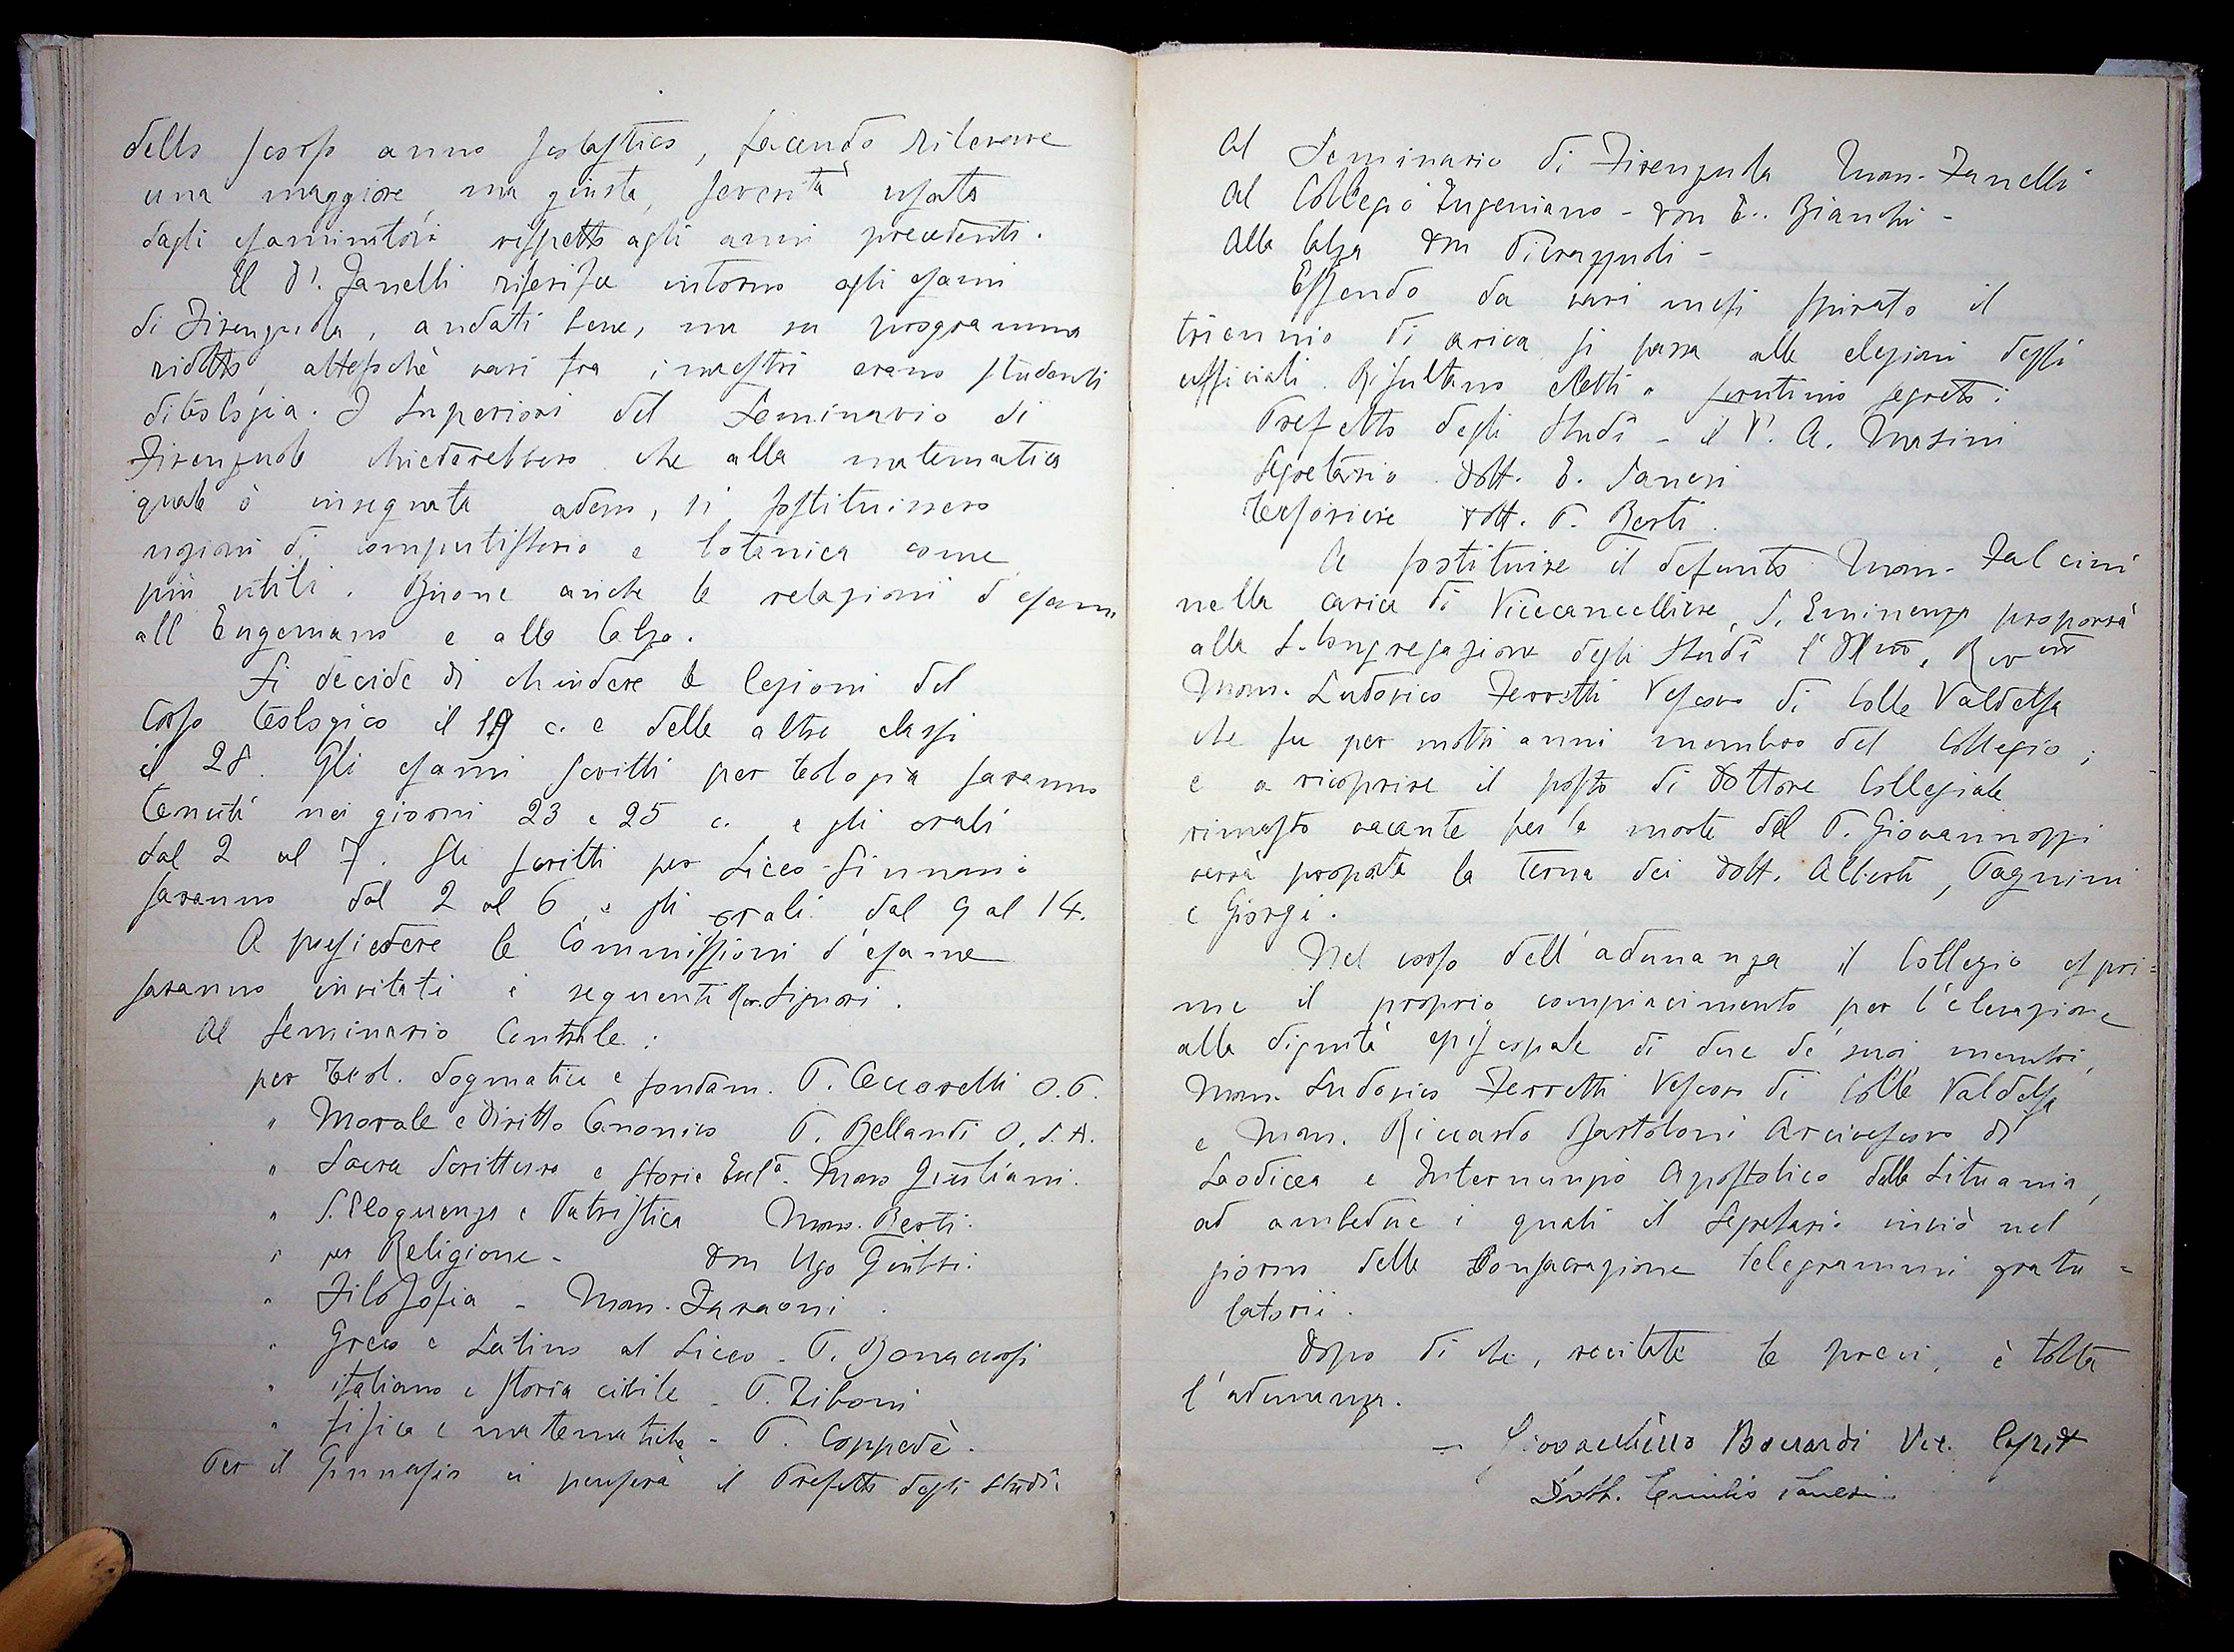 dello scorso anno scolastico, facendo rilevare
una maggiore ma giusta, severità usata
dagli esaminatori rispetto agli anni precedenti.
Il D'. Zanelli riferisce intorno agli esami
di Firenzuola, andati bene, ma su programma
ridotto, attesochè vari fra i maestri erano studenti
di teologia. I Superiori del Seminario di
Firenzuola chiederebbero che alla matematica
quale è insegnata adesso, si sostituissero
nozioni di computisteria e botanica come
più utili. Buone anche le relazioni d'esami
all'Eugeniano e alla Calza.
Si decide di chiudere le lezioni del
Corso teologico il 19 c. e delle altre classi
il 28. Gli esami scritti per teologia saranno
tenuti nei giorni 23 e 25 c. e gli orali
dal 2 al 7. Gli scritti per Liceo-Ginnasio
saranno dal 2 al 6, e gli orali dal 9 al 14.
A presiedere le Commissioni d'esame
saranno invitati i seguenti Rev. Signori.
Al Seminario Centrale:
per Teol. dogmatica e fondam. P. Ceccarelli O.P.
" Morale e Diritto Canonico P. Bellandi O.S.A.
" Sacra Scrittura e Storia Eccl.a Mons Giuliani.
" S. Eloquenza e Patristica Mons. Berti.
" per Religione - Don Ugo Giubbi.
" Filosofia - Mon. Faraoni.
" Greco e Latino al Liceo - P. Bonaccorsi
" italiano e storia civile - P. Ziboni
" fisica e matematiche - P. Coppedè.
Per il Ginnasio ci penserà il Prefetto degli studi.
Al Seminario di Firenzuola Mon. Zanelli
Al Collegio Eugeniano - Don E.. Bianchi -
Alla Calza Don Pierazzuoli -
Essendo da vari mesi spirato il
triennio di carica si passa alle elezioni degli
ufficiali. Risultano eletti a scrutinio segreto:
Prefetto degli Studi - il P. A. Masini
Segretario Dott. E. Sanesi
Tesoriere Dott. P. Berti.
A sostituire il defunto Mon. Falcini
nella carica di Vicecancelliere, S. Eminenza proporrà
alla S. Congregazione degli Studi l'Illmo, Revmo
Mons. Ludovico Ferretti Vescovo di Colle Valdelsa
che fu per molti anni membro del Collegio;
e a ricoprire il posto di Dottore Collegiale
rimasto vacante per la morte del P. Giovannozzi
verrà proposta la terna dei Dott. Alberti, Pagnini
e Giorgi.
Nel corso dell'adunanza il Collegio espri=
me il proprio compiacimento per l'elevazione
alla dignità episcopale di due de' suoi membri,
Mons. Ludovico Ferretti Vescovo di Colle Valdelsa
e Mon. Riccardo Bartoloni Arcivescovo di
Laodicea e Internunzio Apostolico della Lituania,
ad ambedue i quali il Segretario inviò nel
giorno della Consacrazione telegrammi gratu=
latorii.
Dopo di che, recitate le preci, è tolta
l'adunanza.
- Giovacchino Bonardi Vic. Capit
Dott. Emilio Sanesi